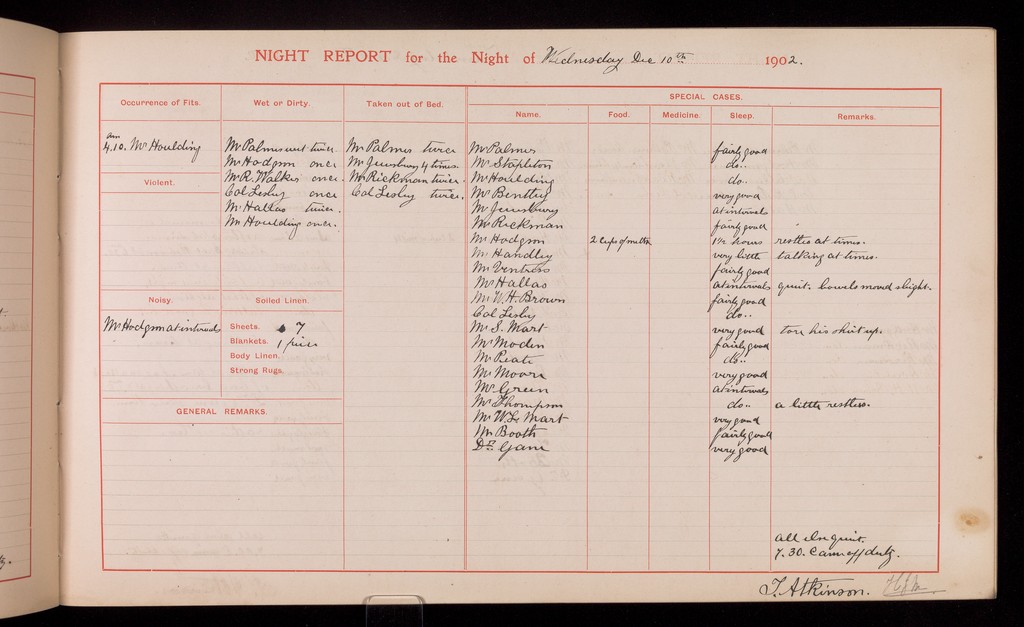 NIGHT REPORT for the Night of Wednesday Dec 10th 1902.
Occurrence of Fits.
Wet or Dirty.
Taken out of Bed.
SPECIAL CASES.
Name. Food. Medicine. Sleep. Remarks.
am
4.10. Mr Houlding
Violent.
Noisy.
Mr Hodgson at intervals
Mr Palmer wet twice.
Mr Hodgson once
Mr R. Walker once.
Col Lesley once
Mr Hallas twice.
Mr Houlding once.
Soiled Linen.
Sheets. 7
Blankets. 1 pair
Body Linen.
Strong Rugs.
Mr Palmer twice
Mr Jewsbury 4 times.
Mr Rickman twice.
Col Lesley twice.
GENERAL REMARKS.
Mr Palmer fairly good
Mr Stapleton do..
Mr Houlding do..
Mr Bentley very good
Mr Jewsbury at intervals
Mr Rickman fairly good
Mr Hodgson 2 Cups of milk 1½ hours restles at times.
Mr Handley very little talking at times.
Mr Ventress fairly good
Mr Hallas at intervals quiet. bowels moved slight.
Mr W. H. Brown fairly good
Col Lesley do..
Mr S. Mart very good tore his shirt up.
Mr Moden fairly good
Mr Peate do..
Mr Moore very good
Mr Green at intervals
Mr Thompson do.. a little restless.
Mr W. L. Mart very good
Mr Booth fairly good
Dr Gane very good
all else quiet.
7.30. Came off duty.
T. Atkinson.